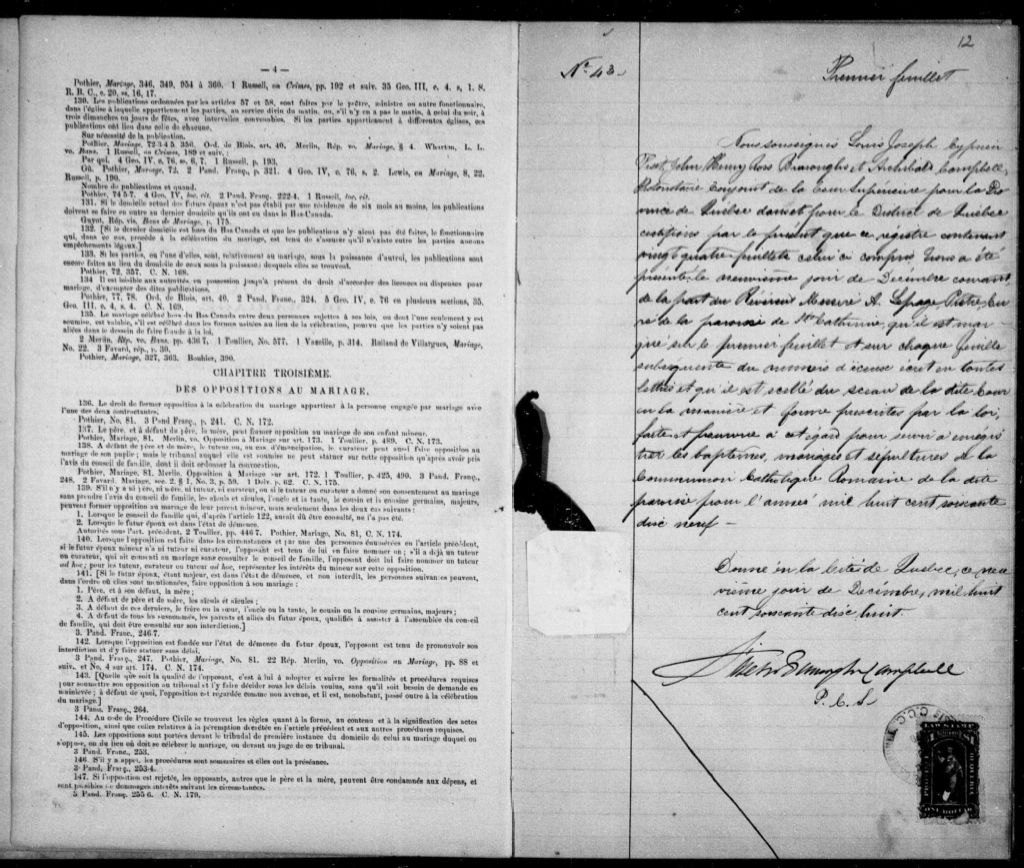 — 4 —
Pothier, Mariage, 346, 349, 354 à 360. 1 Russell, on Crimes, pp. 192 et suiv. 35 Geo. III, c. 4, s. 1. S.
R. B. C., c. 20, ss. 16, 17.
130. Les publications ordonnées par les articles 57 et 58, sont faites par le prêtre, ministre ou autre fonctionnaire,
dans l'église à laquelle appartiennent les parties, au service divin du matin, ou, s'il n'y en a pas le matin, à celui du soir, à
trois dimanches ou jours de fêtes, avec intervalles convenables. Si les parties appartiennent à différentes églises, ces
publications ont lieu dans celle de chacune.
Sur nécessité de la publication.
Pothier, Mariage, 72-3-4 5. 350. Ord. de Blois, art. 40. Merlin, Rép. vo. Mariage, § 4. Wharton, L. L.
vo. Bans. 1 Russell, on Crimes, 189 et suiv.
Par qui. 4 Geo. IV, c. 76, ss. 6, 7. 1 Russell, p. 193.
Où. Pothier, Mariage, 72. 2 Pand. Franç., p. 321. 4 Geo. IV, c. 76, s. 2. Lewis, on Mariage, 8, 22.
Russell, p. 190.
Nombre de publications et quand.
Pothier, 74 5-7. 4 Geo, IV, loc. cit. 2 Pand. Franç. 222-4. 1 Russell, loc. cit.
131. Si le domicile actuel des futurs époux n'est pas établi par une résidence de six mois au moins, les publications
doivent se faire en outre au dernier domicile qu'ils ont eu dans le Bas-Canada.
Guyot, Rép. vis. Bans de Mariage, p. 175.
132. [Si le dernier domicile est hors du Bas Canada et que les publications n'y aient pas été faites, le fonctionnaire
qui, dans ce cas, procède à la célébration du mariage, est tenu de s'assurer qu'il n'existe entre les parties aucuns
empêchements légaux.]
133. Si les parties, ou l'une d'elles, sont, relativement au mariage, sous la puissance d'autrui, les publications sont
encore faites au lieu du domicile de ceux sous la puissance desquels elles se trouvent.
Pothier, 72, 357. C. N. 168.
134 Il est loisible aux autorités en possession jusqu'à présent du droit d'accorder des licences ou dispenses pour
mariage, d'exempter des dites publications.
Pothier, 77, 78. Ord. de Blois, art. 40. 2 Pand. Franc., 324. 5 Geo IV, c. 76 en plusieurs sections, 35,
Geo. III, c. 4, s. 4. C. N. 169.
135. Le mariage célébré hors du Bas Canada entre deux personnes sujettes à ses lois, ou dont l'une seulement y est
soumise, est valable, s'il est célébré dans les formes usitées au lieu de la célébration, pourvu que les parties n'y soient pas
allées dans le dessein de faire fraude à la loi.
2 Merlin, Rép. vo. Bans, pp. 436 7. 1 Toullier, No. 577. 1 Vazeille, p. 314. Rolland de Villargues, Mariage,
No. 22. 3 Favard, rép., p. 30.
Pothier, Mariage, 327, 363. Bouhier, 390.
CHAPITRE TROISIÈME.
DES OPPOSITIONS AU MARIAGE.
136. Le droit de former opposition à la célébration du mariage appartient à la personne engagée par mariage avec
l'une des deux contractantes.
Pothier, No. 81. 3 Pand Franç., p. 241. C. N. 172.
137. Le père, et à défaut du père, la mère, peut former opposition au mariage de son enfant mineur.
Pothier, Mariage, 81. Merlin, vo. Opposition à Mariage sur art. 173. 1 Toullier, p. 489. C. N. 173.
138. A défaut de père et de mère, le tuteur ou, au cas d'émancipation, le curateur peut aussi faire opposition au
mariage de son pupile; mais le tribunal auquel elle est soumise ne peut statuer sur cette opposition qu'après avoir pris
l'avis du conseil de famille, dont il doit ordonner la convocation.
Pothier, Mariage, 81. Merlin, Opposition à Mariage sur art. 172. 1 Toullier, p. 425, 490. 3 Pand. Franç.,
248. 2 Favard, Mariage, sec. 2 § 1, No. 3, p. 59. 1 Delv. p. 62. C. N. 175.
139. S'il n'y a ni père, ni mère, ni tuteur, ni curateur, ou si le tuteur ou curateur a donné son consentement au mariage
sans prendre l'avis du conseil de famille, les aïeuls et aïeules, l'oncle et la tante, le cousin et la cousine germains, majeurs,
peuvent former opposition au mariage de leur parent mineur, mais seulement dans les deux cas suivants:
1. Lorsque le conseil de famille qui, d'après l'article 122, aurait dû être consulté, ne l'a pas été.
2. Lorsque le futur époux est dans l'état de démence.
Autorités sous l'art. précédent, 2 Toullier, pp. 446 7. Pothier, Mariage, No. 81, C. N. 174.
140. Lorsque l'opposition est faite dans les circonstances et par une des personnes énumérées en l'article précédent,
si le futur époux mineur n'a ni tuteur ni curateur, l'opposant est tenu de lui en faire nommer un; s'il a déjà un tuteur
ou curateur, qui ait consenti au mariage sans consulter le conseil de famille, l'opposant doit lui faire nommer un tuteur
ad hoc; pour les tuteur, curateur ou tuteur ad hoc, représenter les intérêts du mineur sur cette opposition.
141. [Si le futur époux, étant majeur, est dans l'état de démence, et non interdit, les personnes suivantes peuvent,
dans l'ordre où elles sont mentionnées, faire opposition à son mariage:
1. Père, et à son défaut, la mère;
2. A défaut de père et de mère, les aïeuls et aïeules;
3. A défaut de ces derniers, le frère ou la sœur, l'oncle ou la tante, le cousin ou la cousine germains, majeurs;
4. A défaut de tous les susnommés, les parents et alliés du futur époux, qualifiés à assister à l'assemblée du conseil
de famille, qui doit être consulté sur son interdiction.]
3. Pand. Franc., 246-7.
142. Lorsque l'opposition est fondée sur l'état de démence du futur époux, l'opposant est tenu de promouvoir son
interdiction et d'y faire statuer sans délai.
3 Pand. Franç., 247. Pothier, Mariage, No. 81. 22 Rép. Merlin, vo. Opposition au Mariage, pp. 88 et
suiv. et No. 4 sur art. 174. C. N. 174.
143. [Quelle que soit la qualité de l'opposant, c'est à lui à adopter et suivre les formalités et procédures requises
pour soumettre son opposition au tribunal et l'y faire décider sous les délais voulus, sans qu'il soit besoin de demande en
mainlevée; à défaut de quoi, l'opposition est regardée comme non avenue, et il est, nonobstant, passé outre à la célébration
du mariage.]
3 Pand. Franç., 264.
144. Au code de Procédure Civile se trouvent les règles quant à la forme, au contenu et à la signification des actes
d'opposition, ainsi que celles relatives à la péremption décrétée en l'article précédent et aux autres procédures requises.
145. Les oppositions sont portées devant le tribunal de première instance du domicile de celui au mariage duquel on
s'oppose, ou du lieu où doit se célébrer le mariage, ou devant un juge de ce tribunal.
3 Pand. Franc., 253.
146. S'il y a appel, les procédures sont sommaires et elles ont la préséance.
3 Pand. Franç., 253-4.
147. Si l'opposition est rejetée, les opposants, autres que le père et la mère, peuvent être condamnés aux dépens, et
sont passibles de dommages intérêts suivant les circonstances.
3 Pand. Franç. 255 6. C. N. 179.
No 43
12
Premier feuillet
Nous soussignés Louis Joseph Cyprien
Fiset, John Henry Ross Burroughs et Archibald Campbell,
Protonotaire Conjoint de la Cour Supérieure pour la Pro
vince de Québec dans et pour le District de Québec
certifions par le présent que ce régistre contenant
vingt quatre feuillets celui ci compris Nous a été
présenté le neuvième jour de Décembre courant
de la part du Révérend Messire A. Lepage Prêtre, Cu
ré de la paroisse de Ste Catherine, qu'il est mar
qué sur le premier feuillet et sur chaque feuille
subséquente du numéro d'icense écrit en toutes
lettres et qu'il est scellé du sceau de la dite Cour
en la manière et forme prescrites par la loi,
faite et pourvue à cet égard pour servir à enrégis
trer les baptêmes, mariages et sépultures de la
Communion Catholique Romaine de la dite
paroisse pour l'année mil huit cent soixante
dix neuf —
Donné en la Cité de Québec, ce neu
vième jour de Décembre, mil huit
cent soixante dix huit
Fiset Burroughs Campbell
P. C. S.
LAW STAMP
PROVINCE OF QUEBEC
ONE DOLLAR